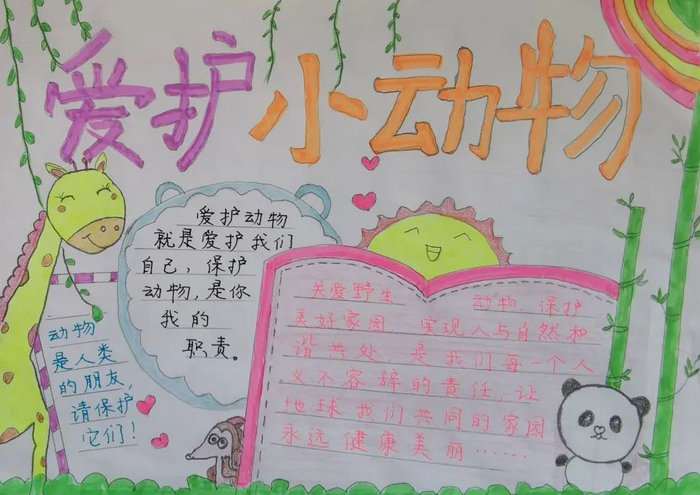 爱护小动物
爱护动物
就是爱护我们
自己，保护
动物，是你
我的
职责。
动物
是人类
的朋友，
请保护
它们！
关爱野生 动物 保护
美好家园 实现人与自然和
谐共处 是我们每一个人
义不容辞的责任，让
地球我们共同的家园
永远健康美丽……